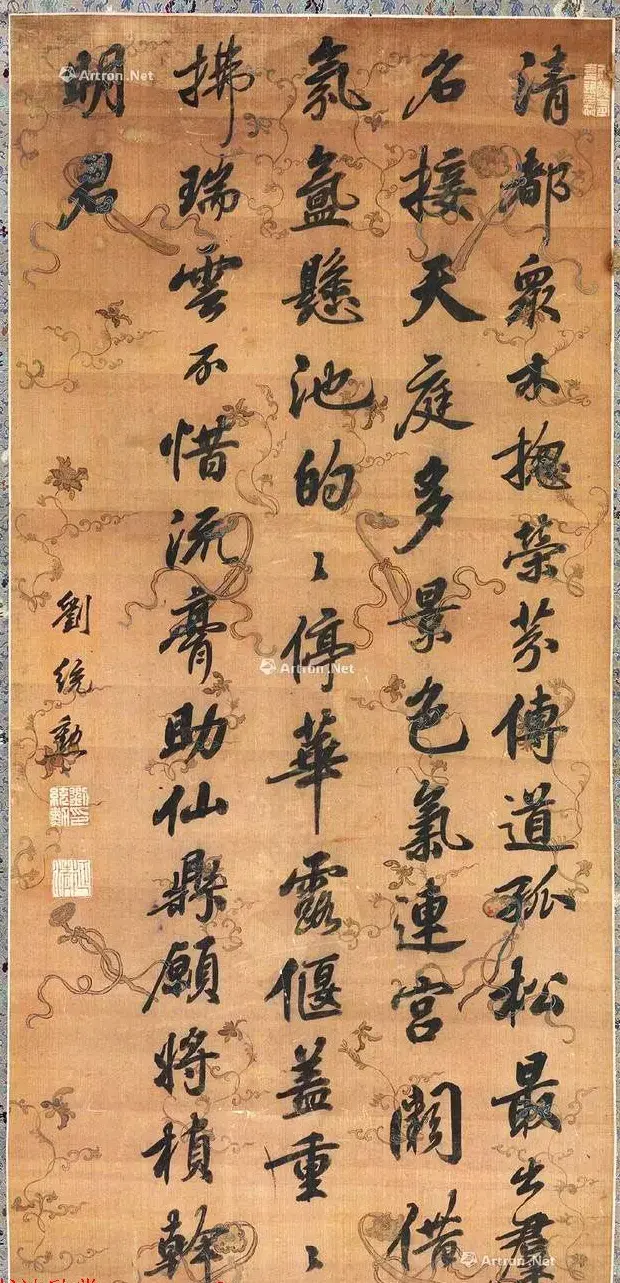 清都眾木揔榮芬傳道孤松最出羣
名接天庭多景色氣連宮闕借
氛氳懸池的〻停華露偃蓋重〻
拂瑞雲不惜流膏助仙鼎願將楨幹
明君
劉統勳
劉印統勳
Artron.Net
Artron.Net
Artron.Net